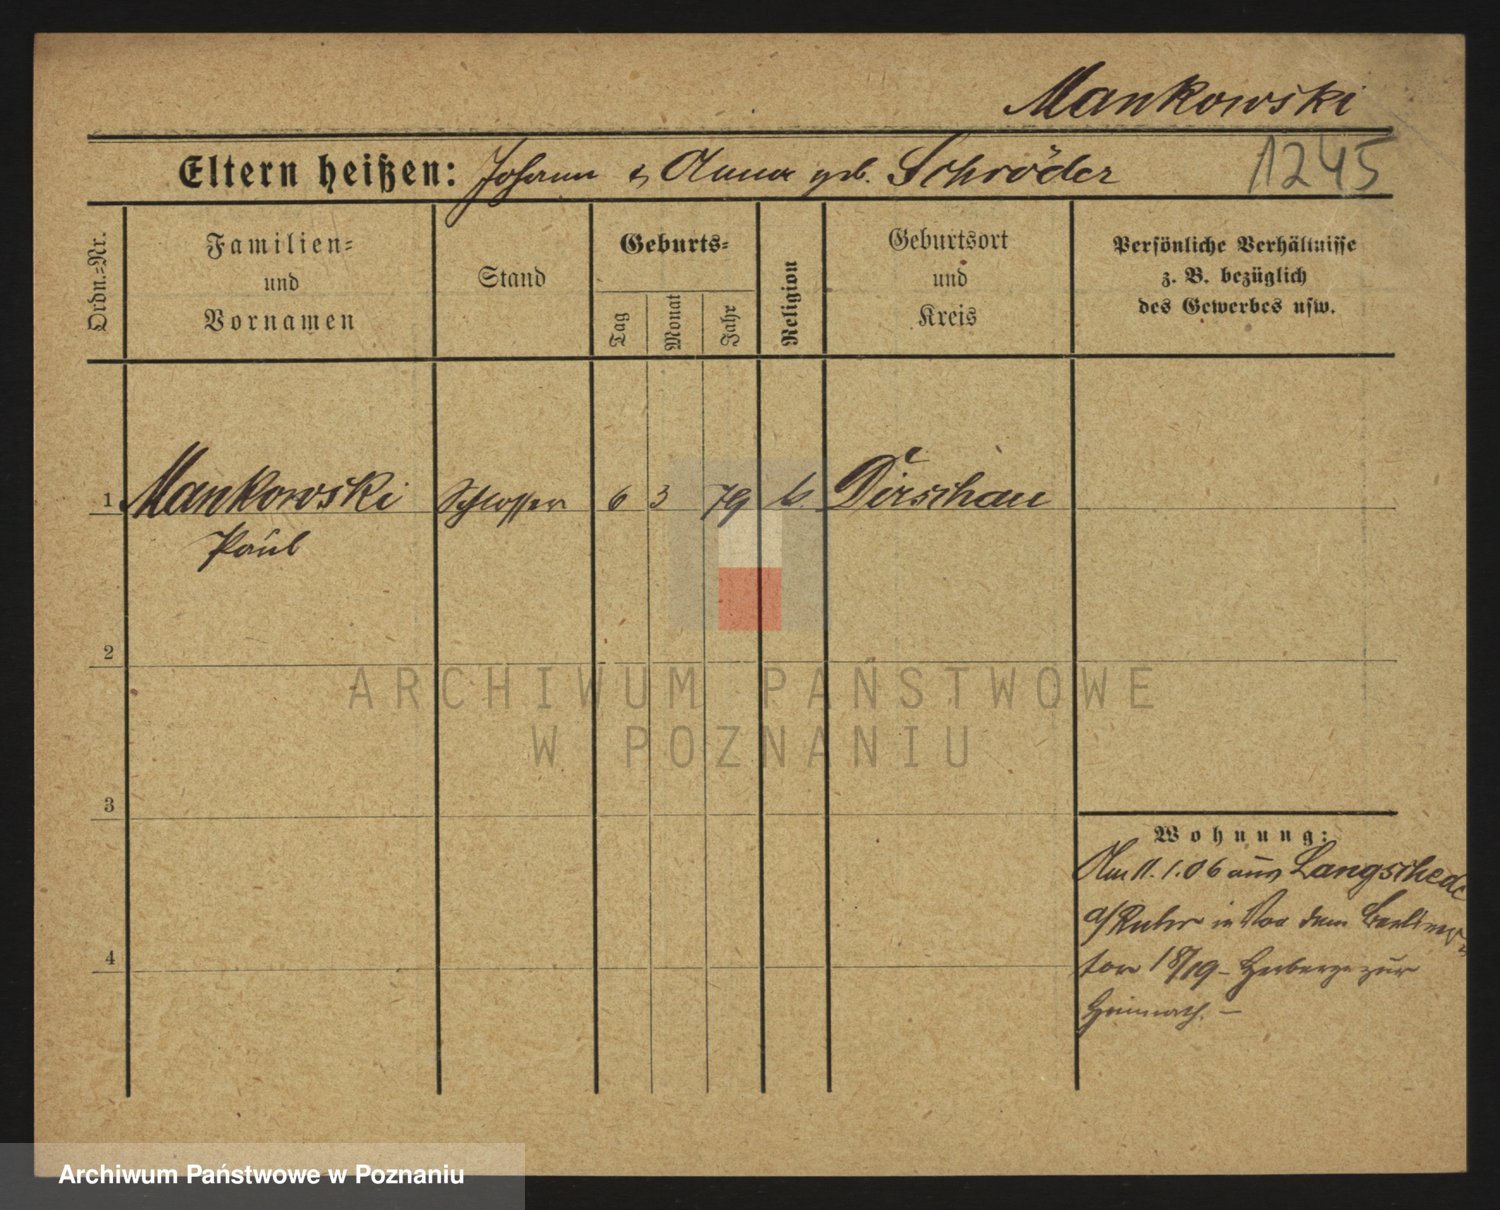 Mankowski
Eltern heißen: Johann & Anna geb. Schröder 1245
Ordn.-Nr.
Familien-
und
Vornamen
Stand
Geburts-
Tag
Monat
Jahr
Religion
Geburtsort
und
Kreis
Persönliche Verhältnisse
z. B. bezüglich
des Gewerbes usw.
1 Mankowski Schlosser 6 3 79 k. Dirschau
Paul
2
3
4
Wohnung:
Am 11.1.06 aus Langschede
a/Ruhr in Vor dem Berliner
tor 18/19 - Herberge zur
Heimath. -
ARCHIWUM PAŃSTWOWE
W POZNANIU
Archiwum Państwowe w Poznaniu